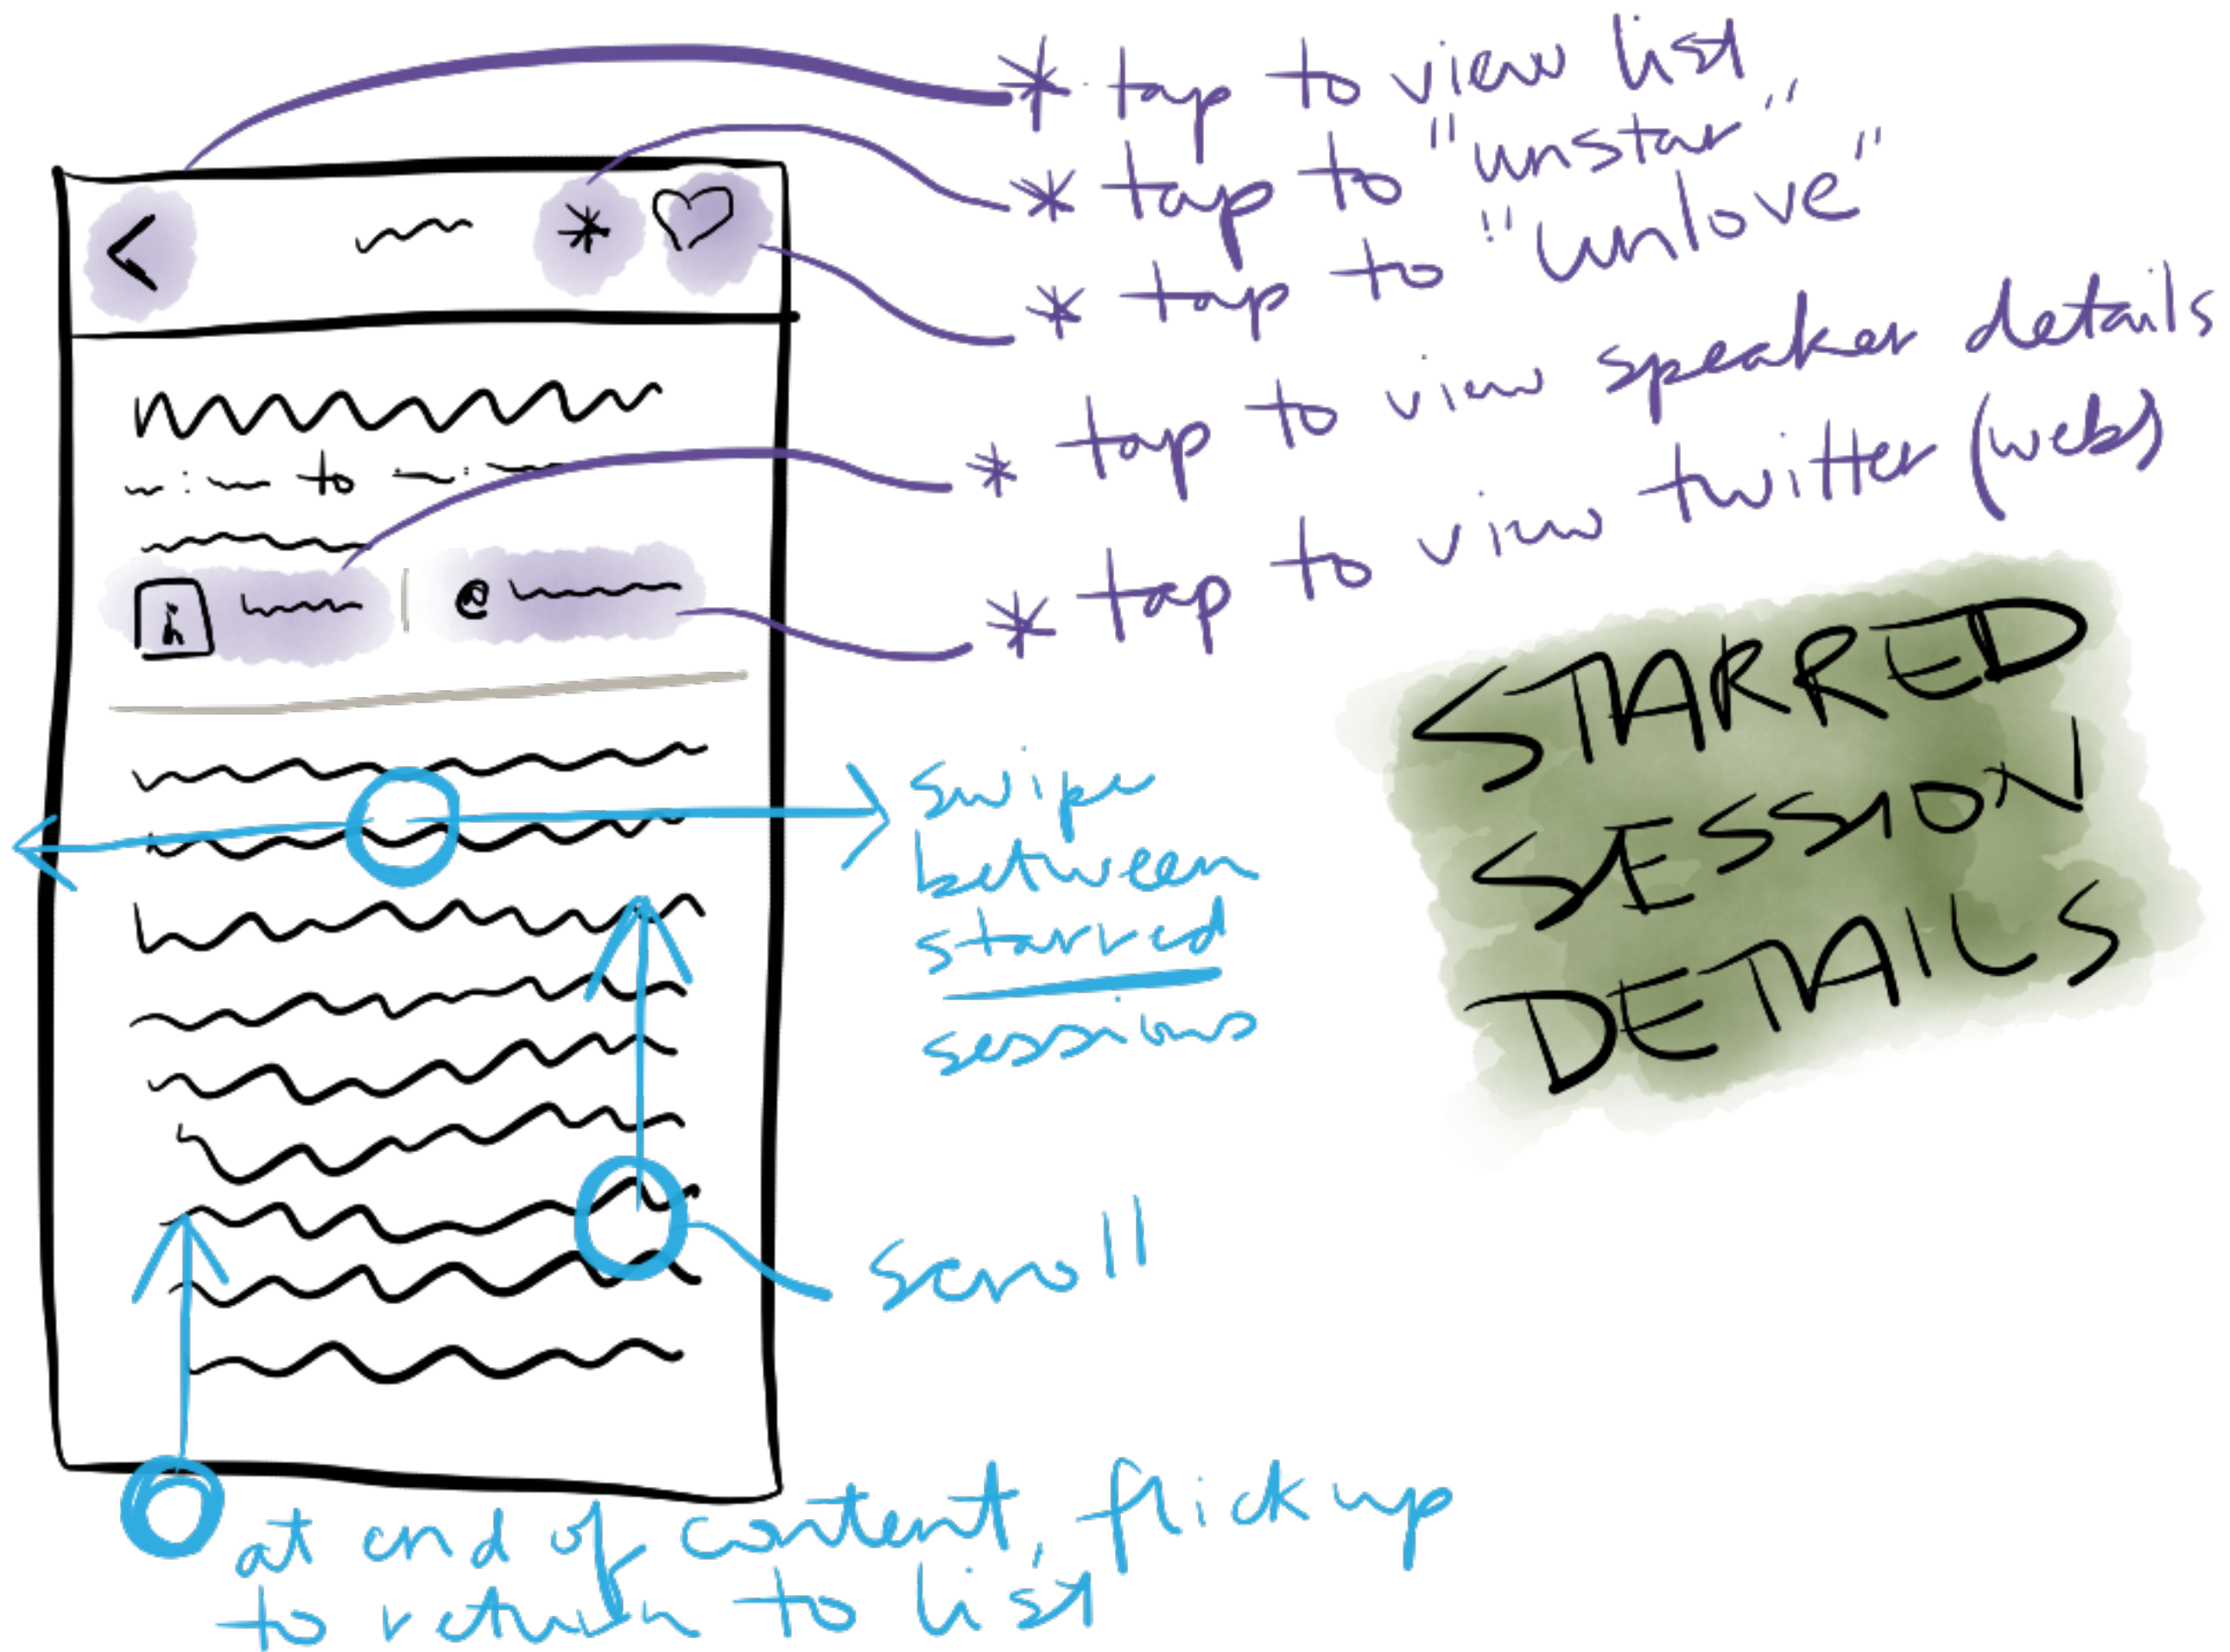 * tap to view list
* tap to "unstar"
* tap to "unlove"
* tap to view speaker details
* tap to view twitter (web)
to
@
STARRED
SESSION
DETAILS
swipe
between
starred
sessions
scroll
at end of content, flick up
to return to list